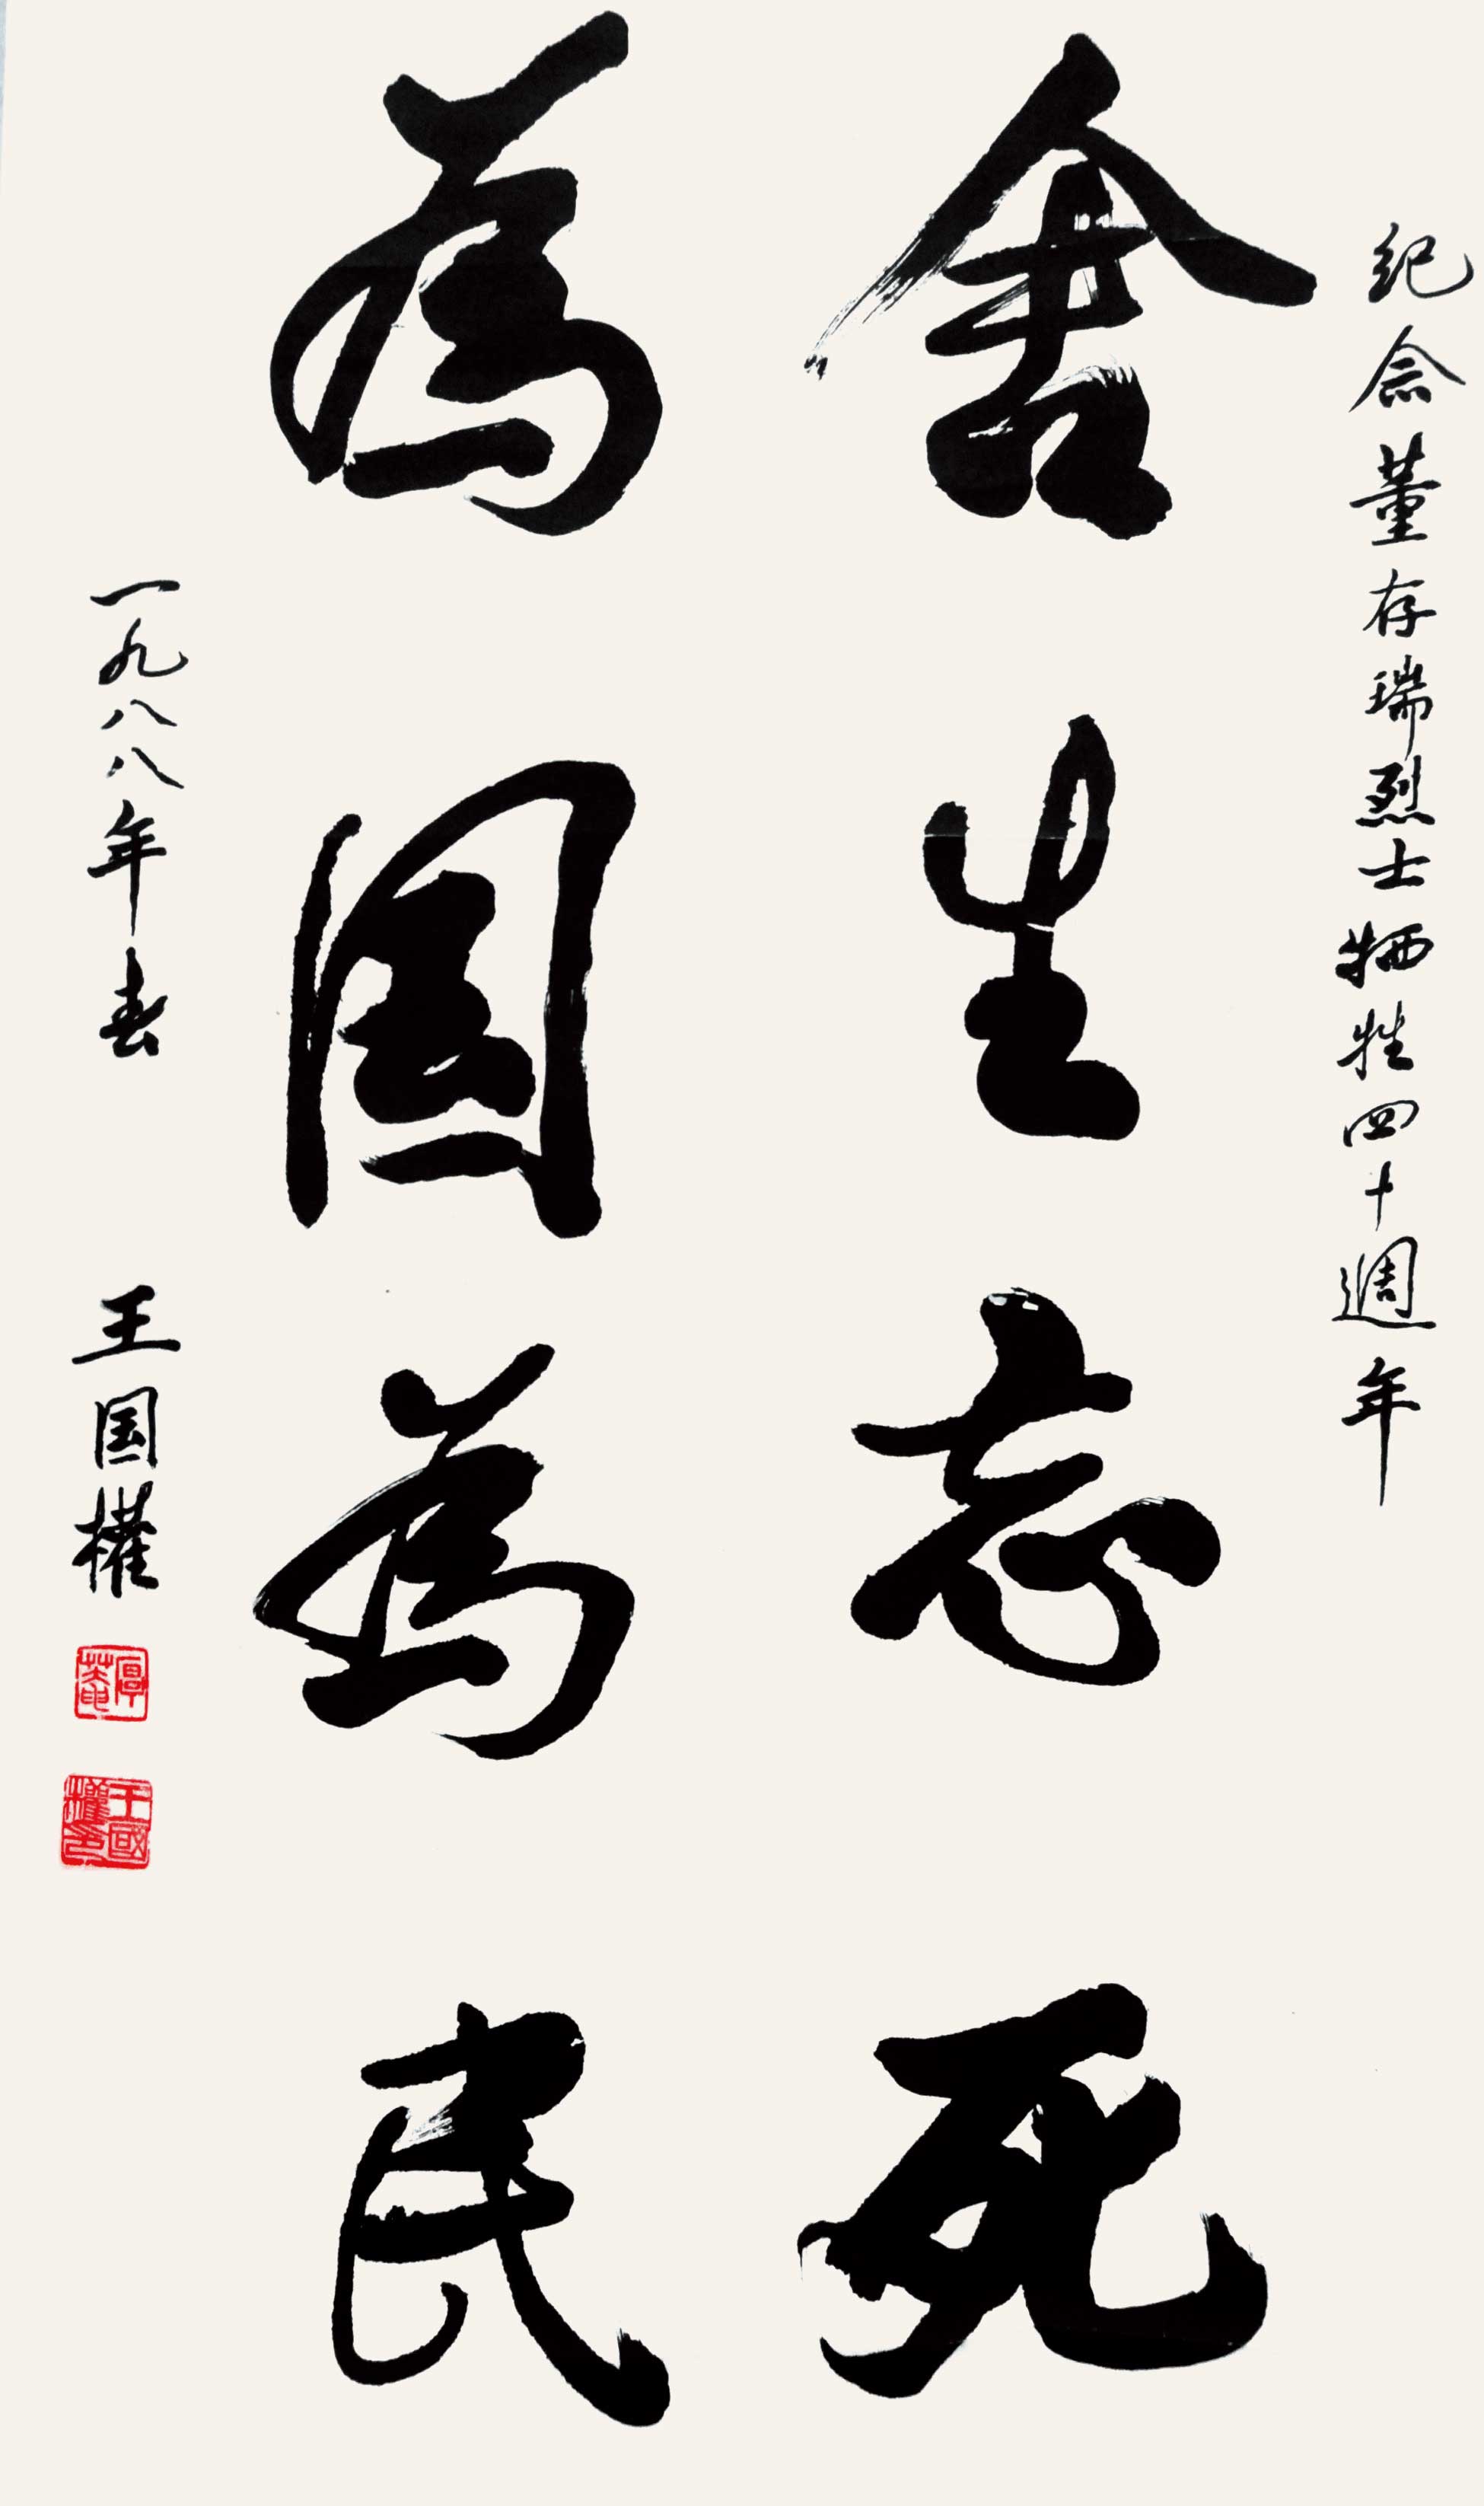 纪念董存瑞烈士牺牲四十週年
舍生忘死
為国為民
一九八八年春 王国權
王國權印